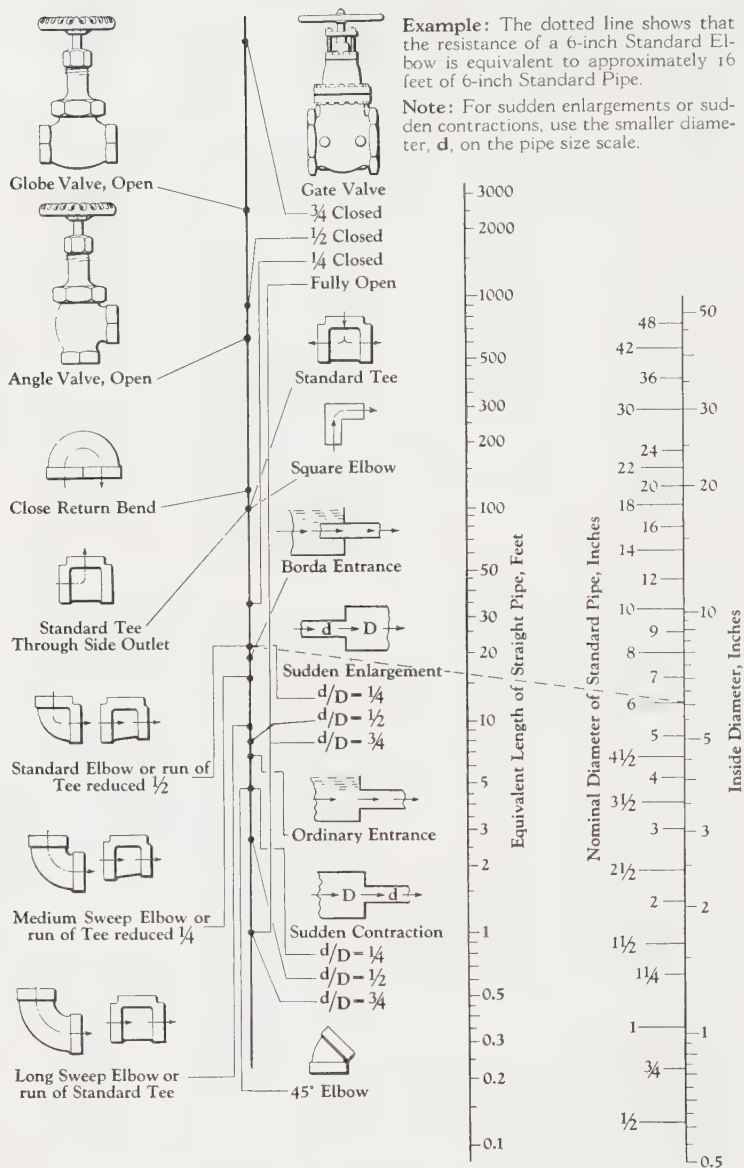 Example: The dotted line shows that
the resistance of a 6-inch Standard El-
bow is equivalent to approximately 16
feet of 6-inch Standard Pipe.
Note: For sudden enlargements or sud-
den contractions, use the smaller diame-
ter, d, on the pipe size scale.
Globe Valve, Open
Angle Valve, Open
Close Return Bend
Standard Tee
Through Side Outlet
Standard Elbow or run of
Tee reduced ½
Medium Sweep Elbow or
run of Tee reduced ¼
Long Sweep Elbow or
run of Standard Tee
Gate Valve
¾ Closed
½ Closed
¼ Closed
Fully Open
Standard Tee
Square Elbow
Borda Entrance
d D
Sudden Enlargement
d/D=¼
d/D=½
d/D=¾
Ordinary Entrance
D d
Sudden Contraction
d/D=¼
d/D=½
d/D=¾
45° Elbow
3000
2000
1000
500
300
200
100
50
30
20
10
5
3
2
1
0.5
0.3
0.2
0.1
Equivalent Length of Straight Pipe, Feet
Nominal Diameter of Standard Pipe, Inches
48
42
36
30
24
22
20
18
16
14
12
10
9
8
7
6
5
4½
4
3½
3
2½
2
1½
1¼
1
¾
½
50
30
20
10
5
3
2
1
0.5
Inside Diameter, Inches